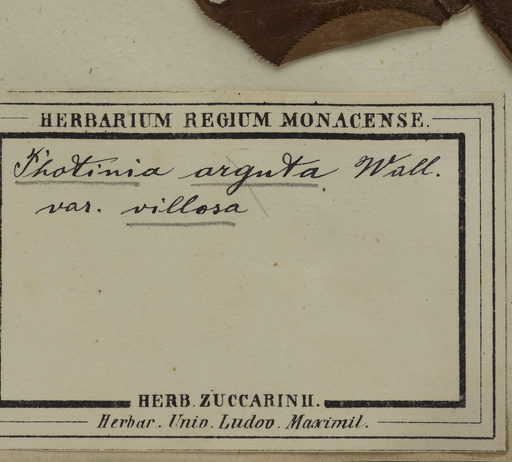 HERBARIUM REGIUM MONACENSE.
Photinia arguta Wall.
var. villosa
HERB. ZUCCARINII.
Herbar. Univ. Ludov. Maximil.